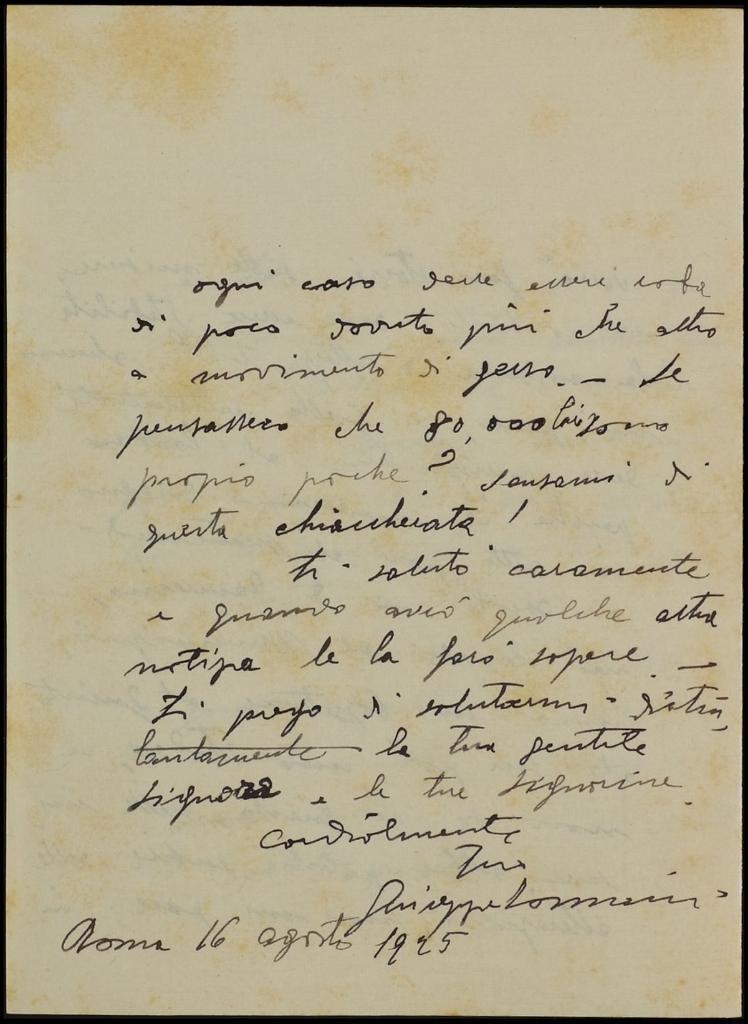 ogni caso deve essere roba
di poco dovuto più che altro
a movimento di gesso. — Se
pensassero che 80,000 
proprio poche? Scusami di
questa chiaccherata!
Ti saluto caramente
e quando avrò qualche altra
notizia te la farò sapere —
Ti prego di salutarmi distin,
tantamente la tua gentile
signora e le tue signorine.
Cordialmente
Tuo
Giuseppe
Roma 16 agosto 1925